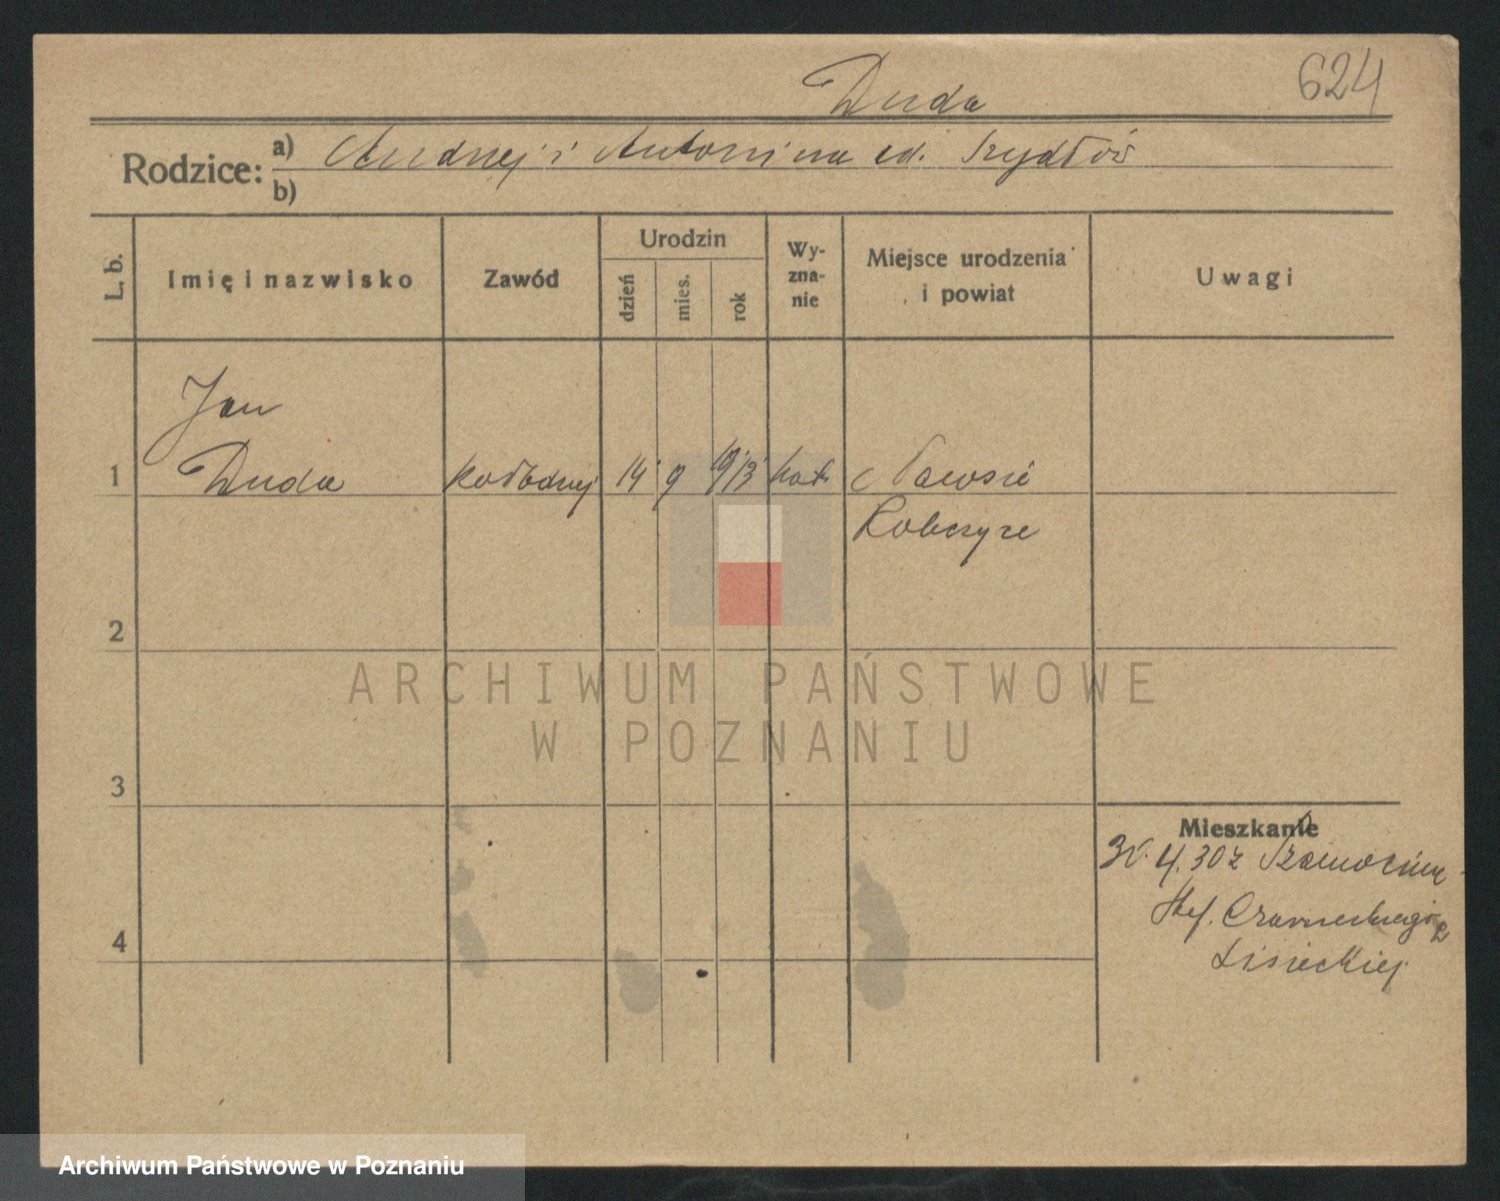 Duda
624
Rodzice:
a) Andrzej i Antonina cd. Szydłów
b)
L. b.
Imię i nazwisko
Zawód
Urodzin
dzień
mies.
rok
Wy-
zna-
nie
Miejsce urodzenia
i powiat
Uwagi
Jan
1 Duda
14 9 1913 kat. Nawsie
Robczyce
2
3
4
Mieszkanie
4.30 z Szamocina
Stef. Czarneckiego 2
Lisieckiej
ARCHIWUM PAŃSTWOWE
W POZNANIU
Archiwum Państwowe w Poznaniu